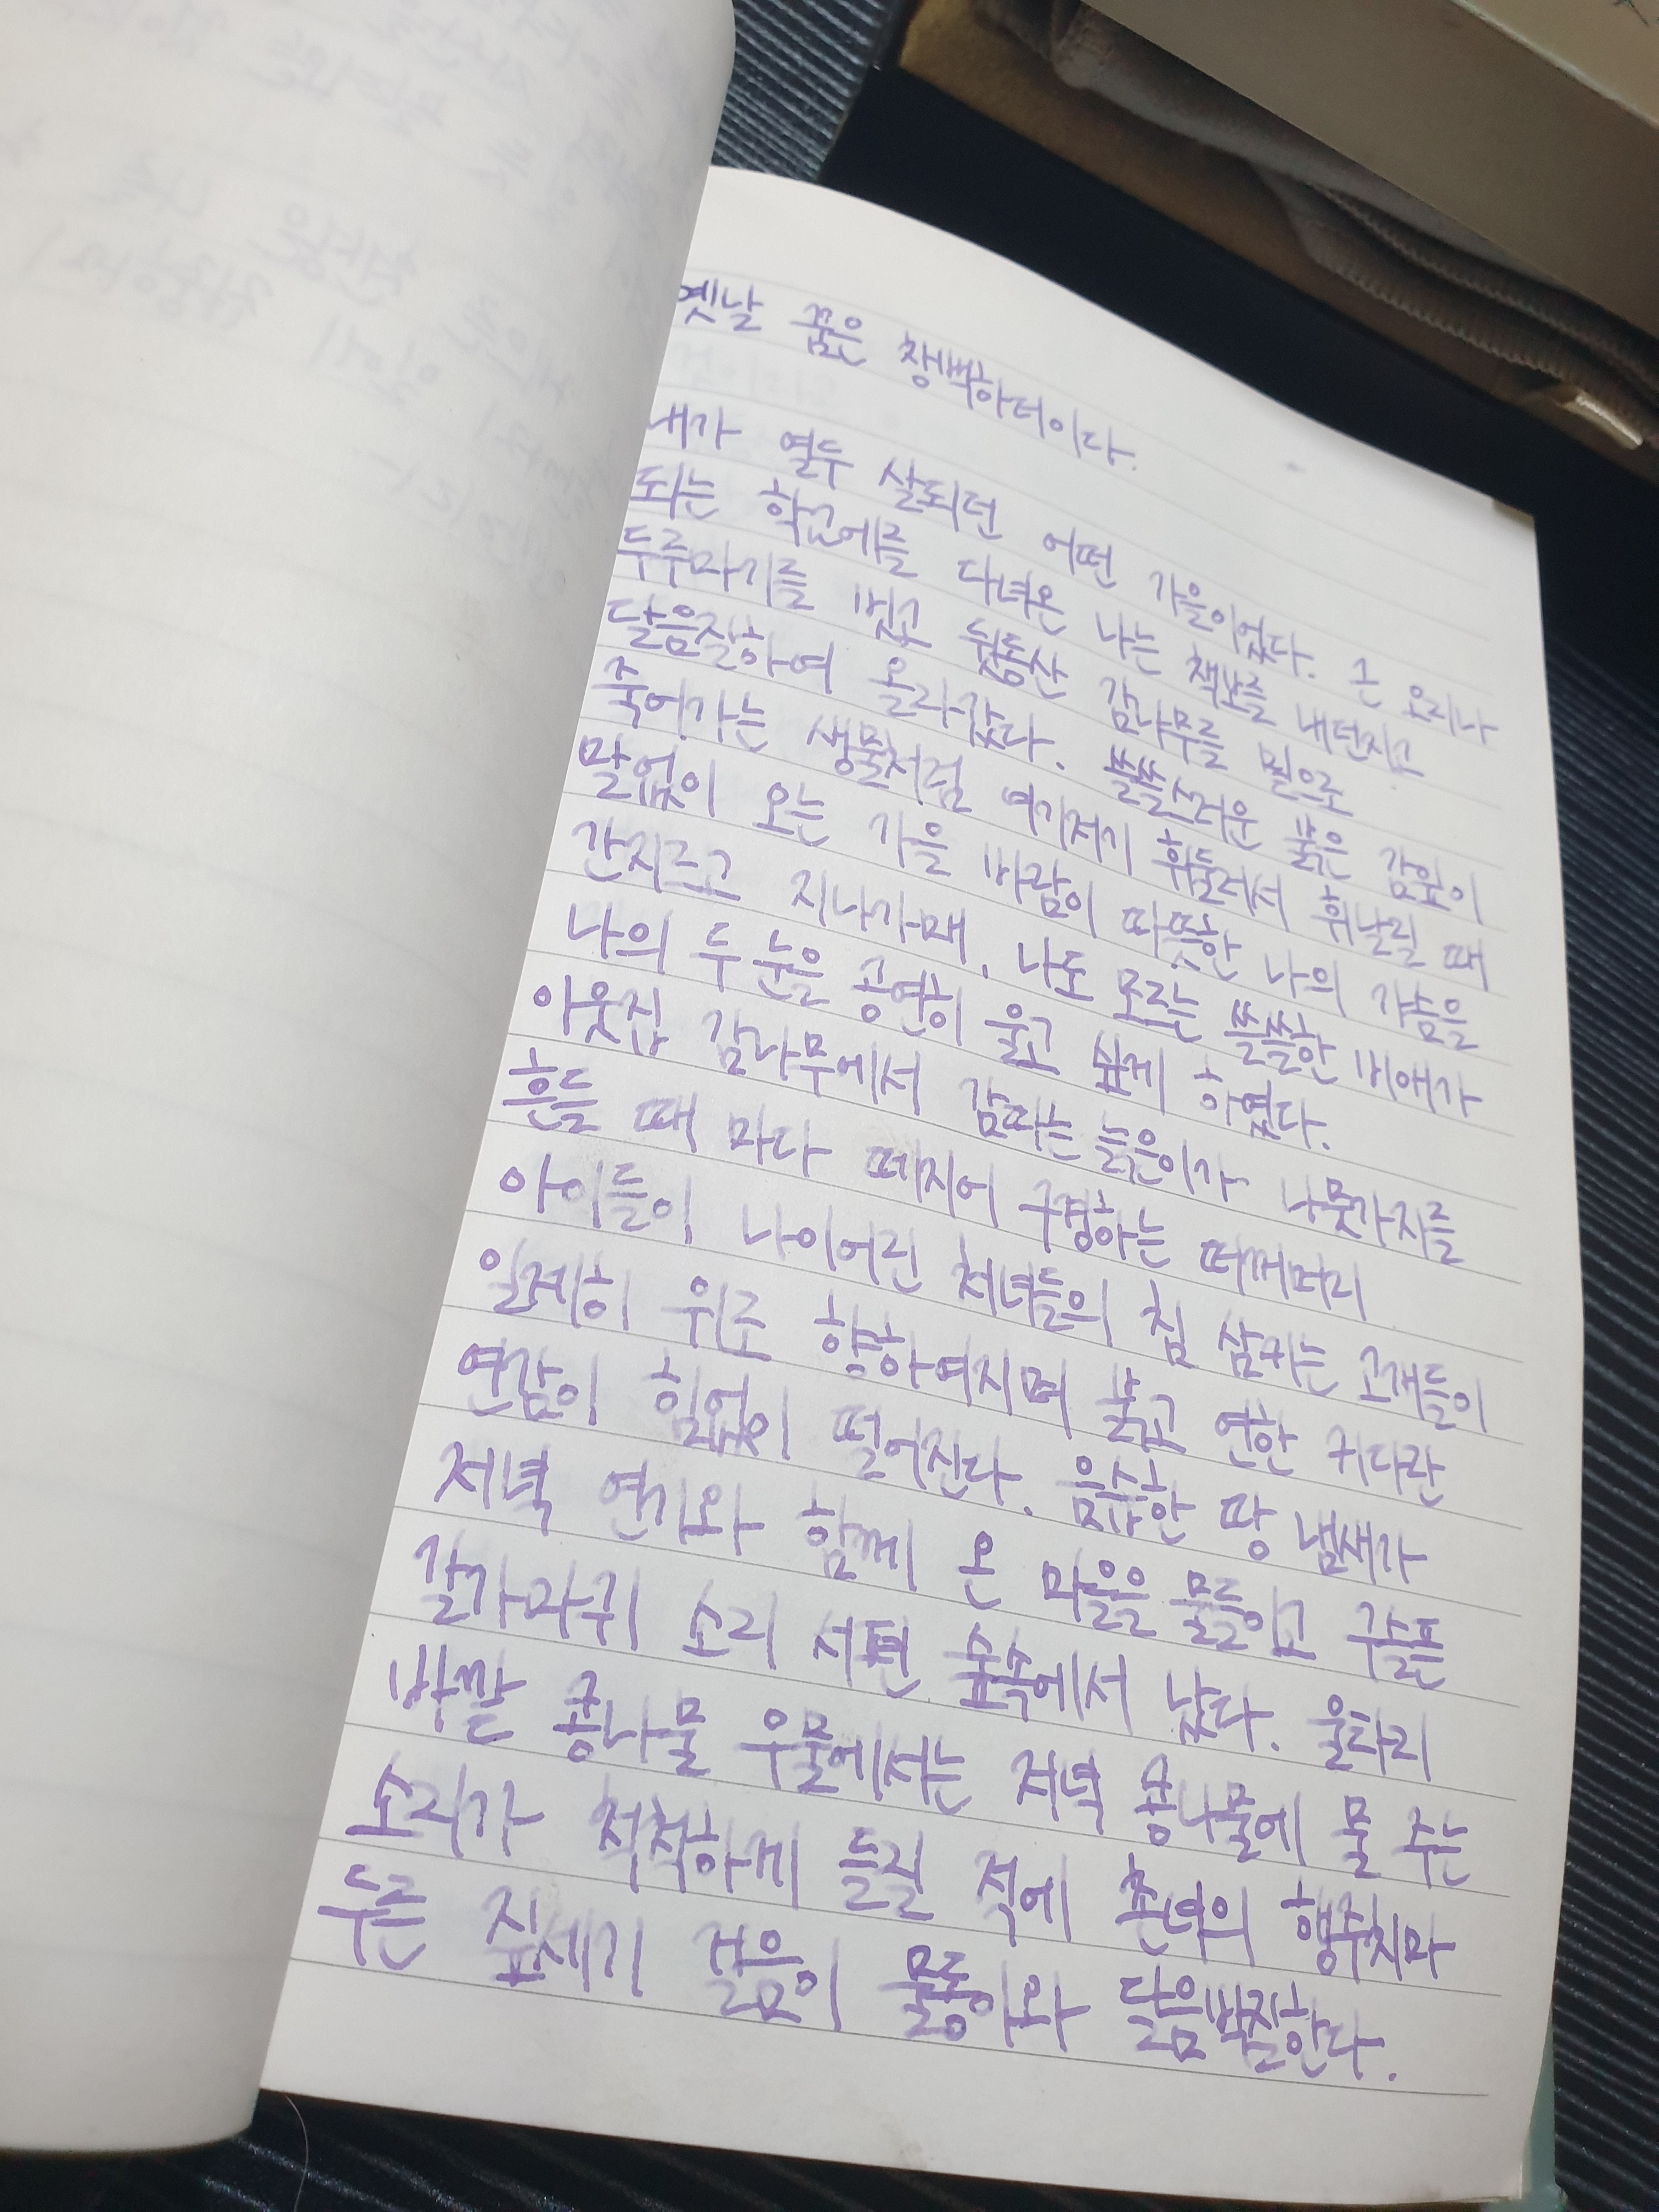 옛날 꿈은 창백하더이다.
내가 열두 살되던 어떤 가을이었다. 근 오리나
되는 학교에를 다녀온 나는 책보를 내던지고
두루마기를 벗고 뒷동산 감나무를 밑으로
달음질하여 올라갔다. 쓸쓸스러운 붉은 감잎이
죽어가는 생물처럼 여기저기 휘둘러서 휘날릴 때
말없이 오는 가을 바람이 따뜻한 나의 가슴을
간지르고 지나가매, 나도 모르는 쓸쓸한 비애가
나의 두 눈을 공연히 울고 싶게 하였다.
이웃집 감나무에서 감따는 늙은이가 나뭇가지를
흔들 때 마다 떼지어 구경하는 떠꺼머리
아이들이 나이어린 처녀들의 침 삼키는 고개들이
일제히 위로 향하여지며 붉고 연한 커다란
연감이 힘없이 떨어진다. 음습한 땅 냄새가
저녁 연기와 함께 온 마을을 물들이고 구슬픈
갈가마귀 소리 서편 숲속에서 났다. 울타리
바깥 콩나물 우물에서는 저녁 콩나물에 물 주는
소리가 척척하게 들릴 적에 촌녀의 행주치마
두른 짚세기 걸음이 물동이와 달음박질한다.